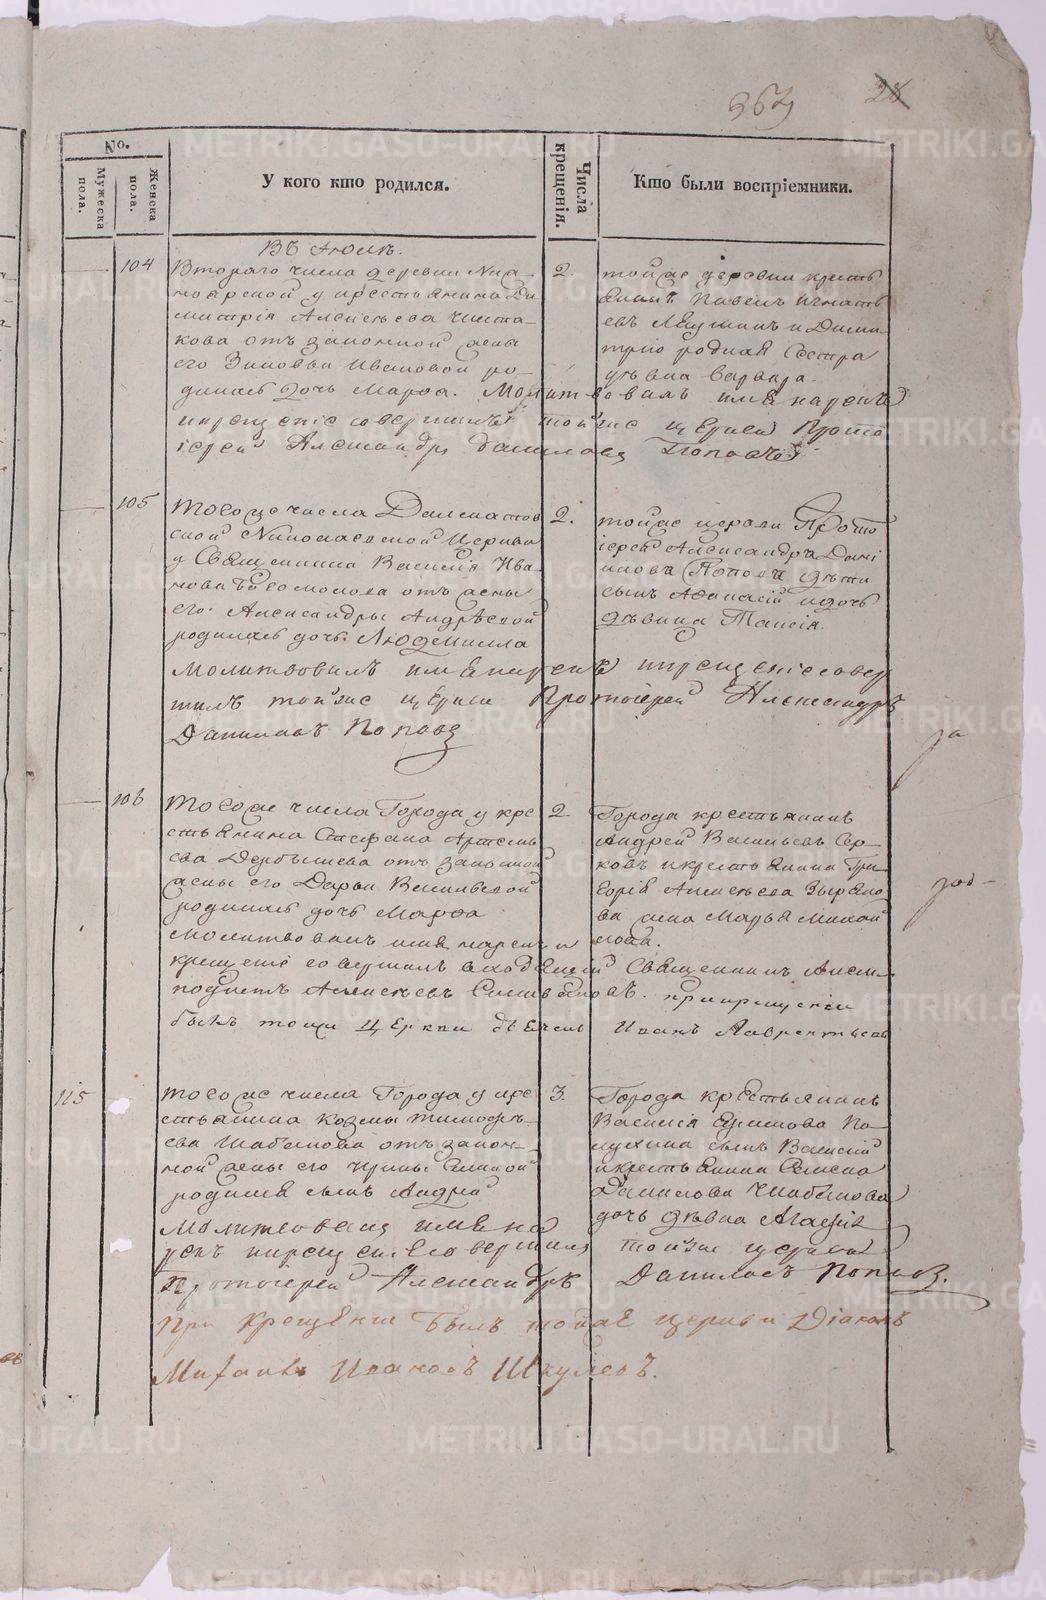 367 28
No.
Мужеска пола.
Женска пола.
У кого кто родился.
Числа крещенія.
Кто были воспріемники.
Въ Іюлѣ.
104
Втораго числа деревни
у крестьянина Ди-
митрія Алексѣева Чиста-
кова отъ законной жены
его Зиновьи Ивановой ро-
дилась дочь Марѳа. Молитвовалъ имя нарекъ
и крещеніе совершилъ той же церкви Прото
іерей Александръ Даниловъ Поповъ
2.
той же деревни кресть
янинъ Павелъ Игнать
евъ и Дими-
трію родная сестра
дѣвица Варвара.
105
Того же числа Далматов
ской Николаевской церкви
у Священника Василія Ива
нова Богомолова отъ жены
его Александры Андрѣевой
родилась дочь Людмилла
Молитвовалъ имя нарекъ и крещеніе совер
шилъ той же церкви Протоіерей Александръ
Даниловъ Поповъ
2.
той же церкви Прото
іерея Александра Дани
лова Попова дѣти
сынъ Аѳанасій и дочь
дѣвица Таисія.
106
Того же числа Города у кре
стьянина Стефана Артемь
ева Дербышева отъ законной
жены его Дарьи Васильевой
родилась дочь Марѳа
Молитвовалъ имя нарекъ и
крещеніе совершилъ Священникъ
Алексѣевъ при крещеніи
былъ тоя церкви Иванъ Лаврентьевъ
2.
Города крестьянинъ
Андрей Васильевъ Сер-
ковъ и крестьянина Гри-
горія Алексѣева Зыряно
ва жена Марья Михай
лова.
115
Того же числа Города у кре
стьянина Козмы Тимоѳѣ-
ева Шабанова отъ закон-
ной жены его Ирины
родился сынъ Андрей
Молитвовалъ имя на
рекъ и крещеніе совершилъ той же церкви
Протоіерей Александръ Даниловъ Поповъ.
3.
Города крестьянинъ
Василія Ефимова По-
лухина сынъ Василій
и крестьянина
Данилова Шабанова
дочь дѣвица Агафія
При крещеніи былъ той же церкви Діаконъ
Михаилъ Ивановъ Шкулевъ.
METRIKI.GASO-URAL.RU